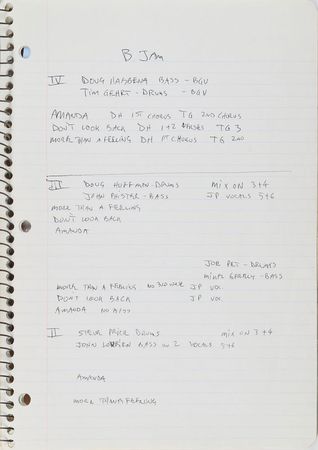 B JAM
IV DOUG BASS - BGV
TIM GEHRT - DRUMS - BGV
AMANDA DH 1ST CHORUS TG 2ND CHORUS
DON'T LOOK BACK DH 1+2 TG 3
MORE THAN A FEELING DH 1ST CHORUS TG 2ND
III DOUG HUFFMAN - DRUMS MIX ON 3+4
JOHN - BASS JP VOCALS 5+6
MORE THAN A FEELING
DON'T LOOK BACK
AMANDA
JOE PET - DRUMS
MIKE - BASS
MORE THAN A FEELING NO 3RD JP VOC
DON'T LOOK BACK JP VOC
AMANDA NO
II STEVE PRICE DRUMS MIX ON 3+4
JOHN BASS ON 2 VOCALS 5+6
AMANDA
MORE THAN A FEELING